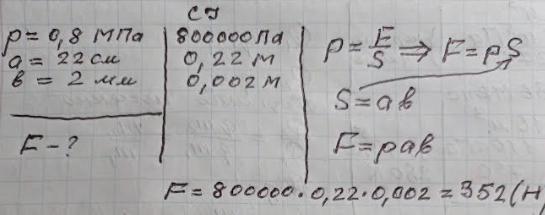 СИ
p = 0,8 МПа 800000 Па
a = 22 см 0,22 м
в = 2 мм 0,002 м
F - ?
P = F/S ⇒ F = pS
S = aв
F = paв
F = 800000 · 0,22 · 0,002 = 352 (Н)